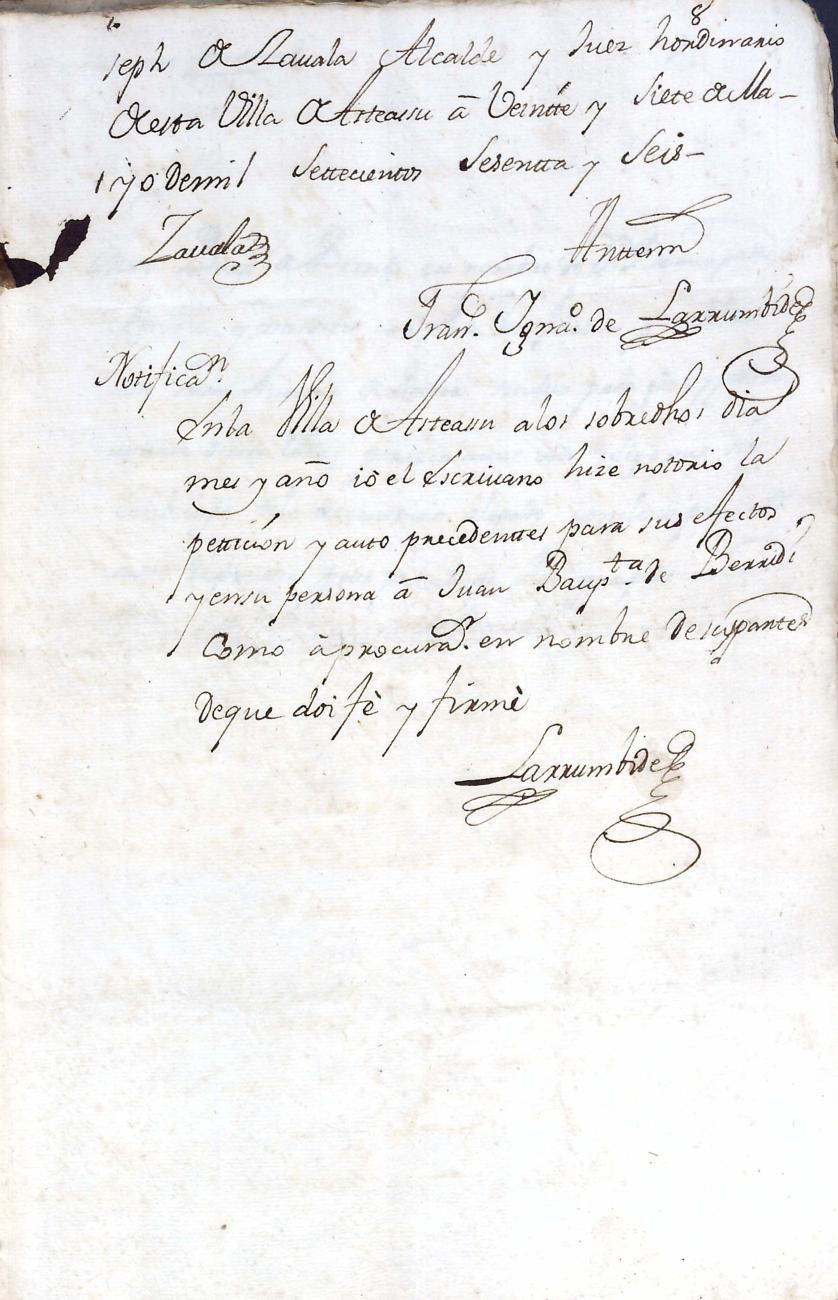 8
seph de Zauala Alcalde y Juez hordinnario
de esta Villa de Asteassu â Veintte y Siete de Ma-
yo de mil Settecientos Sesentta y Seis-
Zauala
Antte mi
Fran.co Ygna.o de Larrumbide
Notifica.n
En la Villa de Asteassu a los sobredhos dia
mes y año io el Escriuano hize notorio la
petición y auto precedenttes para sus efectos
y en su persona â Juan Baup.ta de Berridi
Como â procura.r en nombre de su partte
de que doi fè y firmè
Larrumbide